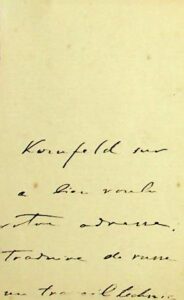 Kornfeld sur
a bien voulu
votre adresse.
traduire du russe
un travail